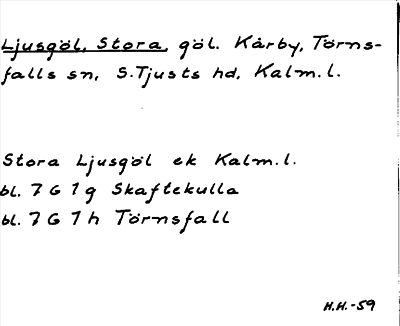 Ljusgöl, Stora, göl. Kårby, Törns-
falls sn, S.Tjusts hd, Kalm.l.
Stora Ljusgöl ek Kalm.l.
bl. 7 G 1 g Skaftekulla
bl. 7 G 1 h Törnsfall
H.H.-59